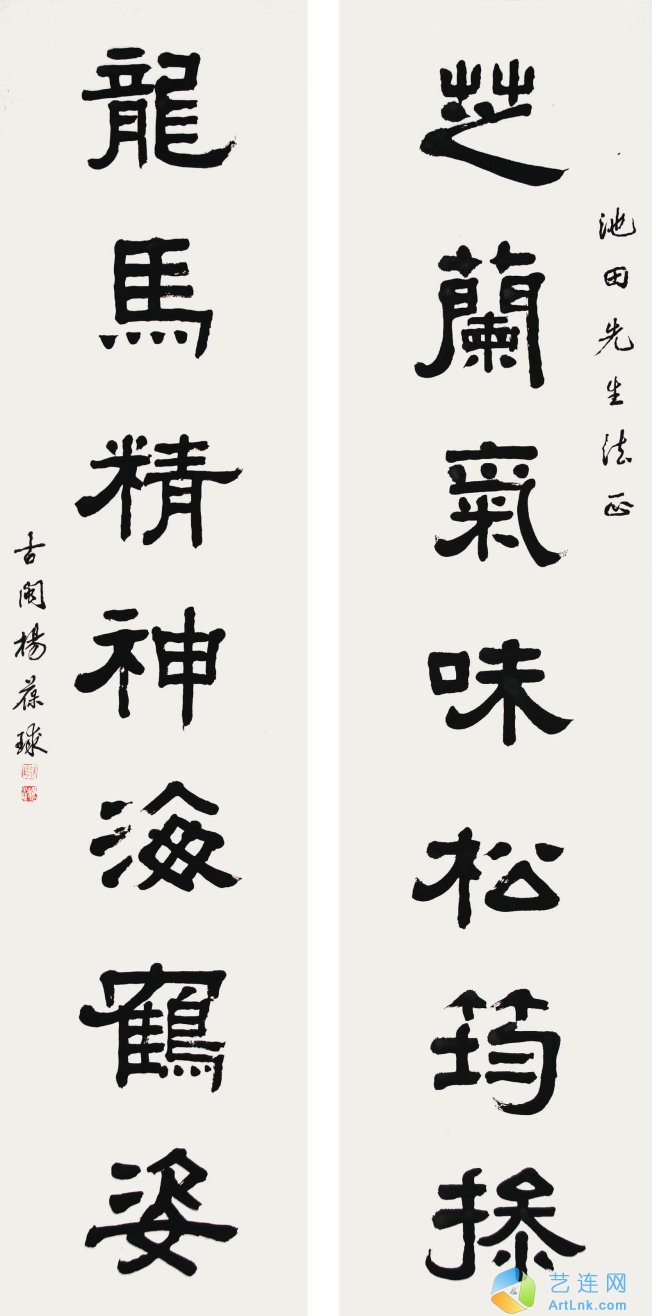 池田先生法正
芝蘭氣味松筠操
龍馬精神海鶴姿
古閩楊葆球
艺连网
ArtLnk.com